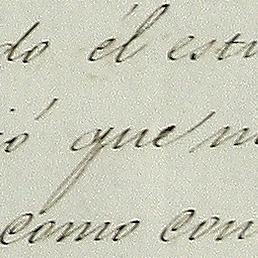 do él estu
ió que m
como con